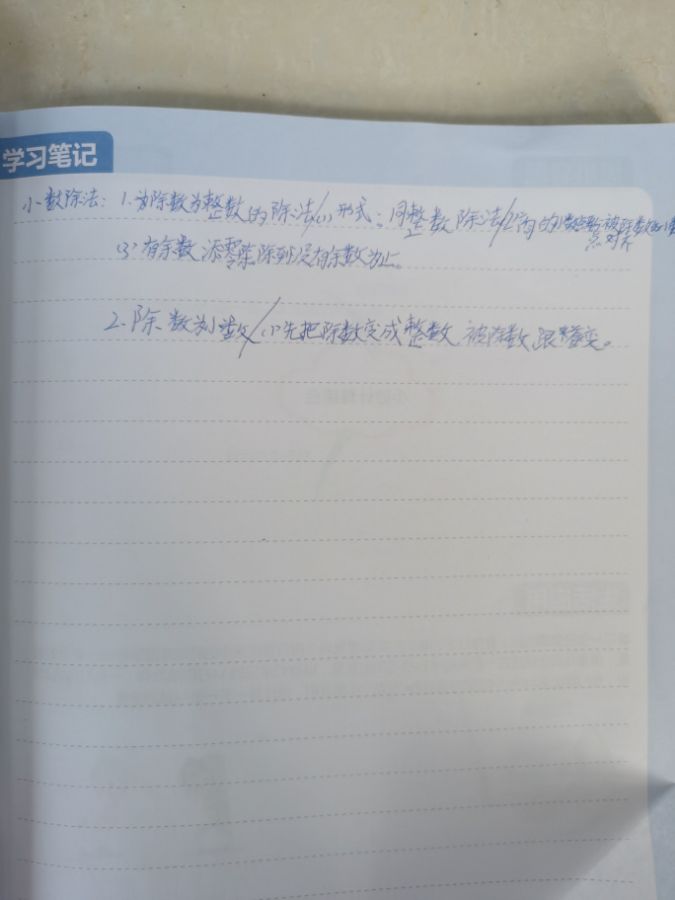 学习笔记
小数除法：1.当除数为整数的除法/(1)形式：同整数除法/(2)商的小数点与被除数的小数点对齐
(3)有余数,添零继续除到没有余数为止。
2.除数为小数/(1)先把除数变成整数,被除数跟着变。